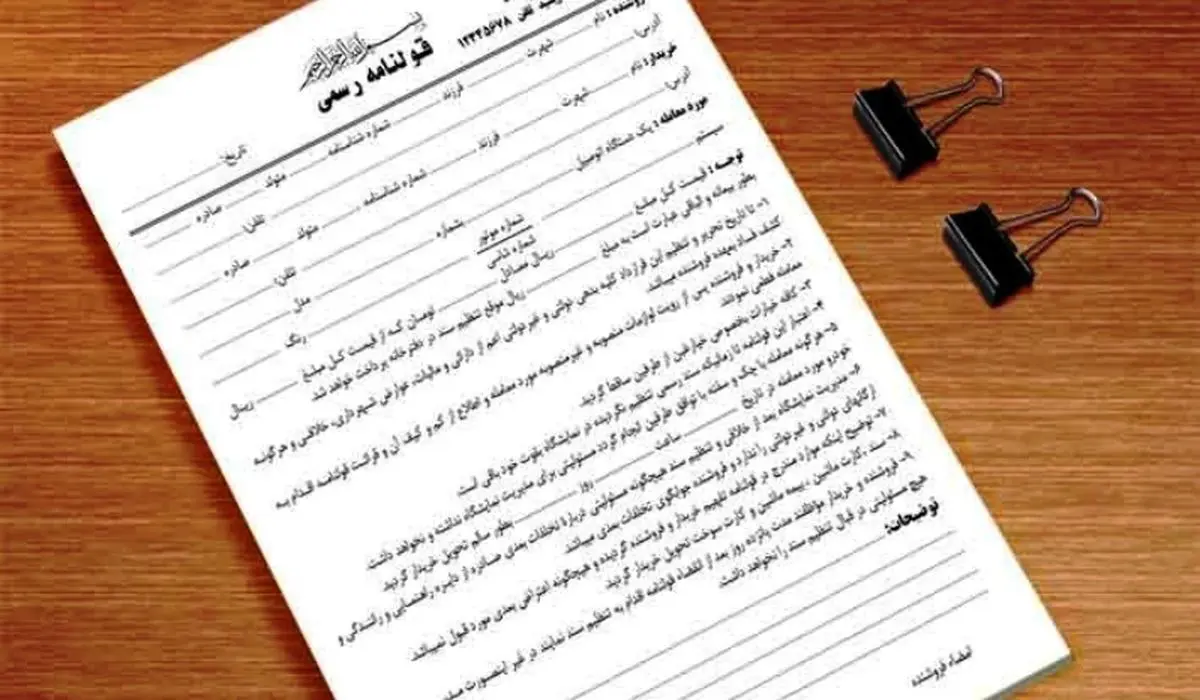 بسم الله الرحمن الرحیم
قولنامه رسمی
تلفن ۱۲۳۴۵۶۷۸
تاریخ:
فروشنده: نام شهرت فرزند شماره شناسنامه متولد صادره
آدرس: تلفن:
خریدار: نام شهرت فرزند شماره شناسنامه متولد صادره
آدرس: تلفن:
مورد معامله: یک دستگاه اتومبیل بشماره مدل رنگ
سیستم شماره موتور
شماره شاسی
توجه: قیمت کل مبلغ ریال معادل تومان که از قیمت کل مبلغ ریال
بطور بیعانه و الباقی عبارت است به مبلغ ریال موقع تنظیم سند در دفترخانه پرداخت خواهد شد.
۱- تا تاریخ تحریر و تنظیم این قرارداد کلیه بدهی دولتی و غیردولتی اعم از دارائی و مالیات، عوارض شهرداری، خلافی و هرگونه
کشف فساد بعهده فروشنده میباشد.
۲- خریدار و فروشنده پس از رویت لوازمات منصوبه و غیرمنصوبه مورد معامله و اطلاع از کم و کیف آن و قرائت قولنامه اقدام به
معامله قطعی نمودند.
۳- کافه خیارات بخصوص خیارغبن از طرفین ساقط گردید.
۴- اعتبار این قولنامه تا زمانیکه سند رسمی تنظیم نگردیده در نمایشگاه بقوت خود باقی است.
۵- هرگونه معامله با چک و سفته با توافق طرفین انجام گردد مسئولیتی برای مدیریت نمایشگاه نداشته و نخواهد داشت.
خودرو مورد معامله در تاریخ ساعت روز بطور سالم تحویل خریدار گردید.
۶- مدیریت نمایشگاه بعد از خلافی و تنظیم سند هیچگونه مسئولیتی درباره تخلفات بعدی صادره از دایره راهنمایی و رانندگی و
ارگانهای دولتی و غیردولتی را ندارد و فروشنده جوابگوی تخلفات بعدی میباشد.
۷- توضیح اینکه موارد مندرج در قولنامه تفهیم خریدار و فروشنده گردیده و هیچگونه اعتراض بعدی مورد قبول نمیباشد.
۸- سند، کارت ماشین، بیمه ماشین و کارت سوخت تحویل خریدار گردید.
۹- فروشنده و خریدار موظفند مدت پانزده روز بعد از انقضاء قولنامه اقدام به تنظیم سند نمایند در غیر اینصورت
هیچ مسئولیتی در قبال تنظیم سند را نخواهد داشت.
توضیحات:
امضاء فروشنده